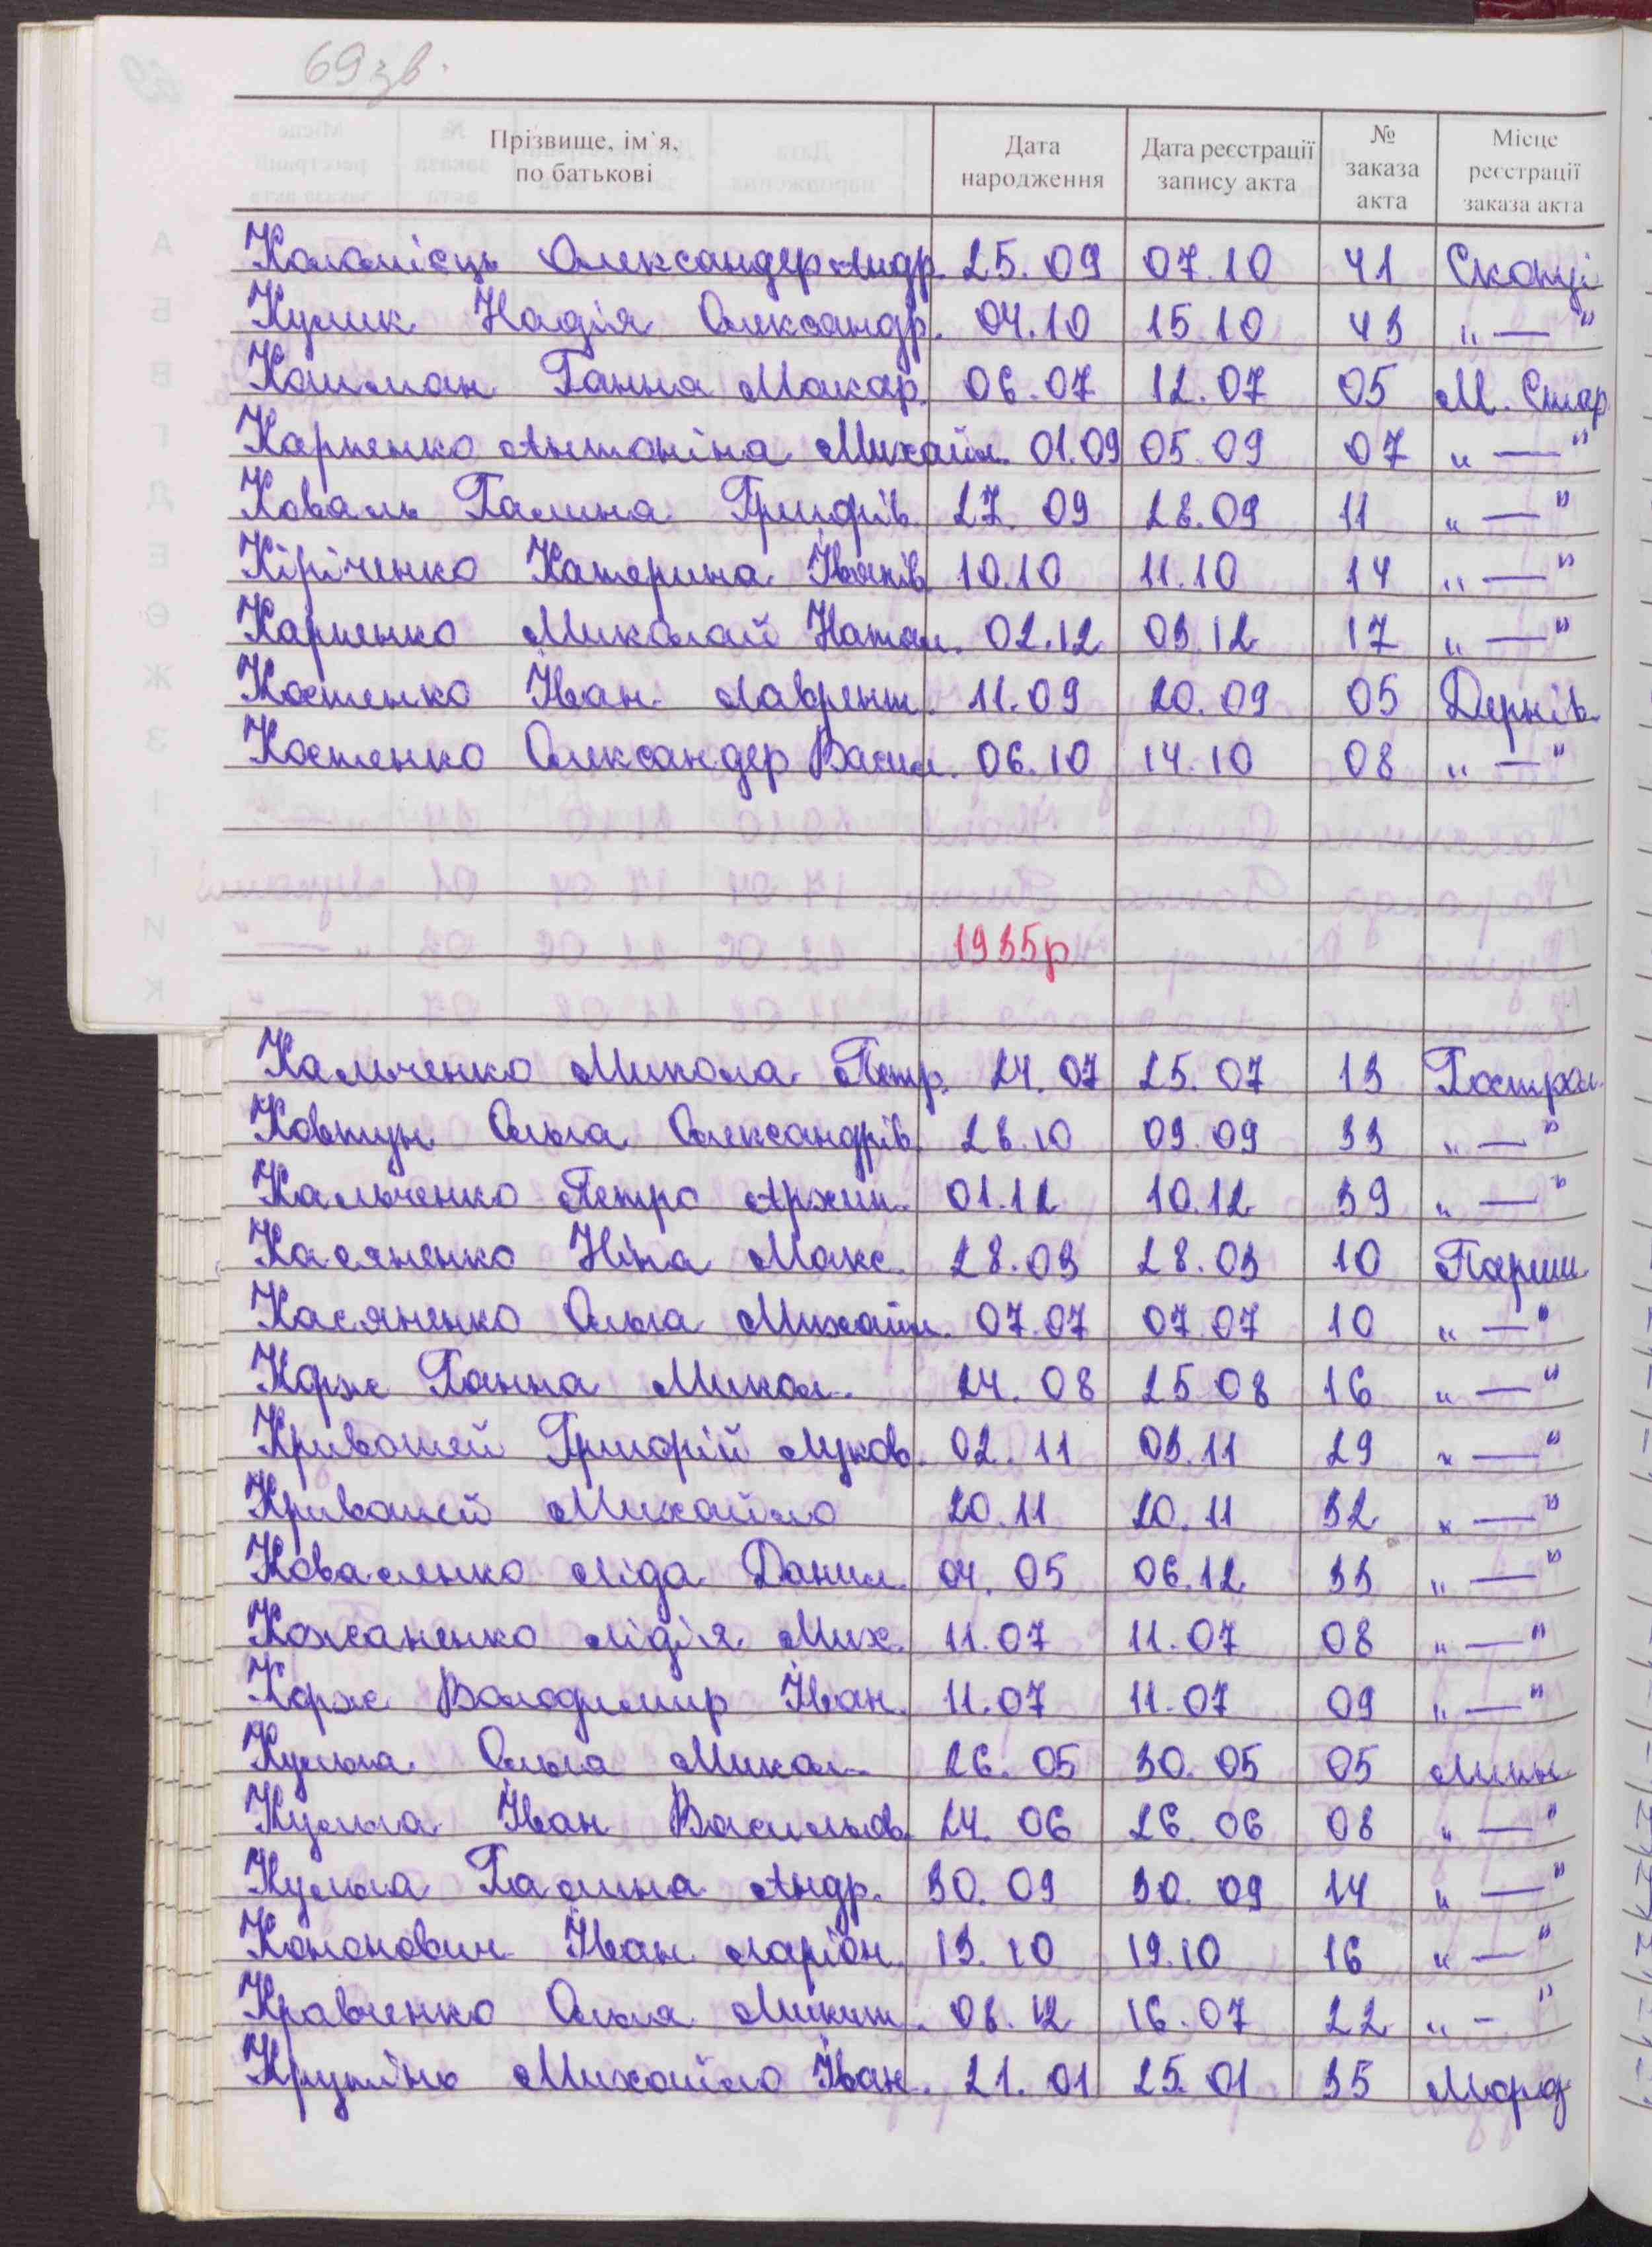 69 зв.
Прізвище, ім`я, по батькові Дата народження Дата реєстрації запису акта № заказа акта Місце реєстрації заказа акта
Коломієць Олександер Андр. 25.09 07.10 41 Скопці
Кулик Надія Олександр. 04.10 15.10 43 "—"
Кошман Ганна Макар. 06.07 12.07 05 М. Стар
Карпенко Антоніна Михайл. 01.09 05.09 07 "—"
Коваль Галина Григорів. 27.09 28.09 11 "—"
Кіріченко Катерина Іванів 10.10 11.10 14 "—"
Карпенко Миколай Натал. 02.12 03.12 17 "—"
Костенко Іван Лаврент. 11.09 20.09 05 Дернів.
Костенко Олександер Васил. 06.10 14.10 08 "—"
1935р
Кальченко Микола Петр. 24.07 25.07 13 Гостро
Ковтун Ольга Олександрів. 28.10 09.09 33 "—"
Кальченко Петро Архип. 01.12 10.12 39 "—"
Касяненко Ніна Макс. 28.03 28.03 10 Парши
Касяненко Ольга Михайл. 07.07 07.07 10 "—"
Корж Ганна Микол. 24.08 25.08 16 "—"
Кривошей Григорій Луков. 02.11 03.11 29 "—"
Кривошей Михайло 20.11 20.11 32 "—"
Коваленко Ліда Данил. 04.05 06.12 33 "—"
Кожаненко Лідія Мих. 11.07 11.07 08 "—"
Корж Володимир Іван. 11.07 11.07 09 "—"
Кульга Ольга Микол. 26.05 30.05 05
Кульга Іван Васильов. 24.06 26.06 08 "—"
Кульга Галина Андр. 30.09 30.09 14 "—"
Кононович Іван Ларіон. 13.10 19.10 16 "—"
Кравченко Ольга Микит. 08.12 16.07 22 "-"
Михайло Іван. 21.01 25.01 35 Морд